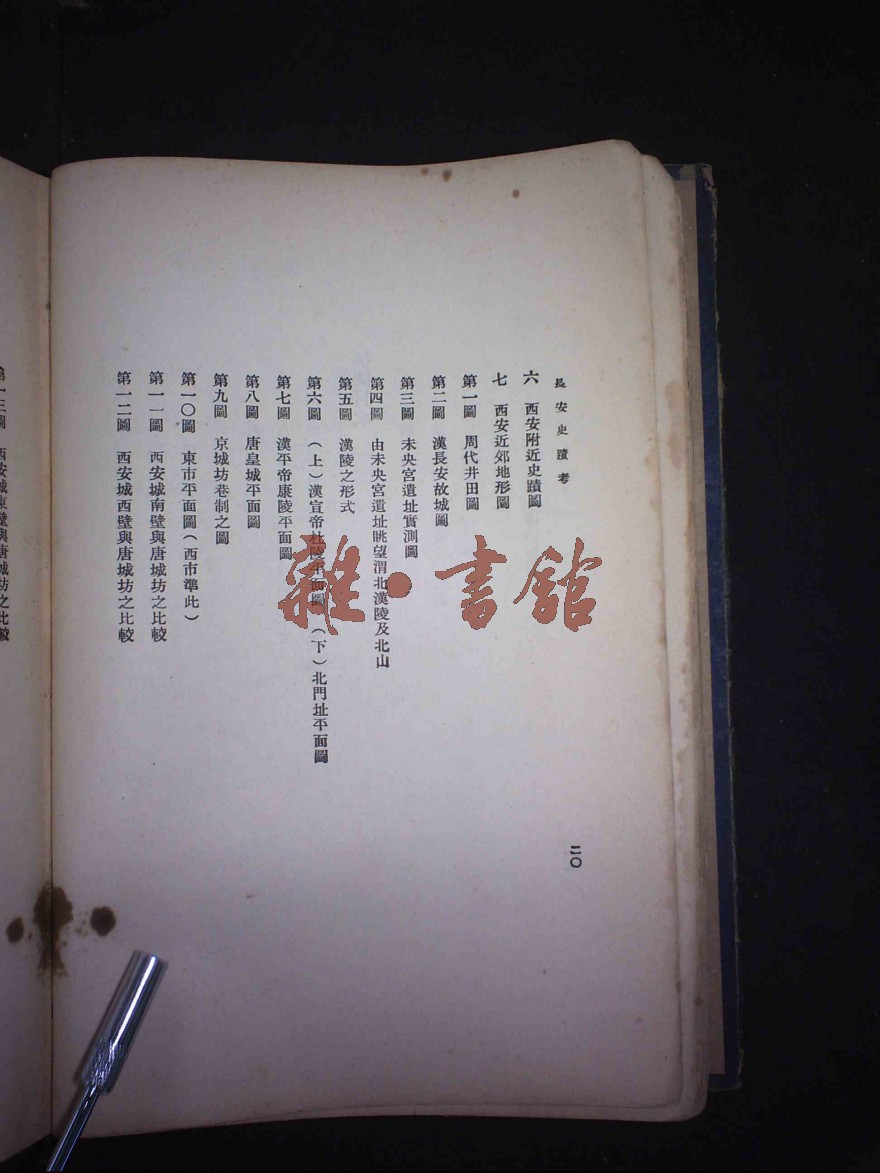 長安史蹟考
六　西安附近史蹟圖
七　西安近郊地形圖
第一圖　周代井田圖
第二圖　漢長安故城圖
第三圖　未央宮遺址實測圖
第四圖　由未央宮遺址眺望渭北漢陵及北山
第五圖　漢陵之形式
第六圖　(上)漢宣帝杜陵平面圖　(下)北門址平面圖
第七圖　漢平帝康陵平面圖
第八圖　唐皇城平面圖
第九圖　京城坊巷制之圖
第一〇圖　東市平面圖(西市準此)
第一一圖　西安城南壁與唐城坊之比較
第一二圖　西安城西壁與唐城坊之比較
二〇
第一三圖　西安城東壁與唐城坊之比較
雜·書館